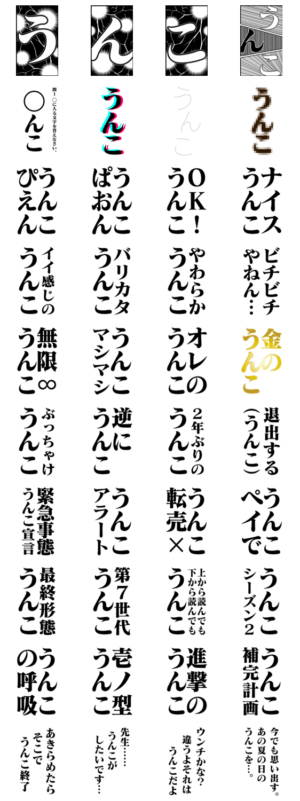 う
ん
こ
う
ん
こ
問1 ○に入る文字を答えなさい。
○んこ
うんこ
うんこ
うんこ
うんこ
ぴえん
うんこ
ぱおん
OK！
うんこ
ナイス
うんこ
イイ感じの
うんこ
バリカタ
うんこ
やわらか
うんこ
ビチビチ
やねん…
無限∞
うんこ
うんこ
マシマシ
オレの
うんこ
金の
うんこ
ぶっちゃけ
うんこ
逆に
うんこ
2年ぶりの
うんこ
退出する
（うんこ）
緊急事態
うんこ宣言
うんこ
アラート
うんこ
転売×
うんこ
ペイで
最終形態
うんこ
第7世代
うんこ
上から読んでも
下から読んでも
うんこ
うんこ
シーズン2
うんこ
の呼吸
壱ノ型
うんこ
進撃の
うんこ
うんこ
補完計画
あきらめたら
そこで
うんこ終了
先生……
うんこが
したいです…
ウンチかな？
違うよそれは
うんこだよ
今でも思い出す。
あの夏の日の
うんこを…。